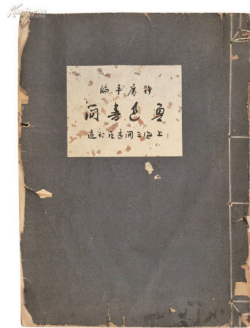 許廣平編
魯迅書簡
上海三閒書屋印造